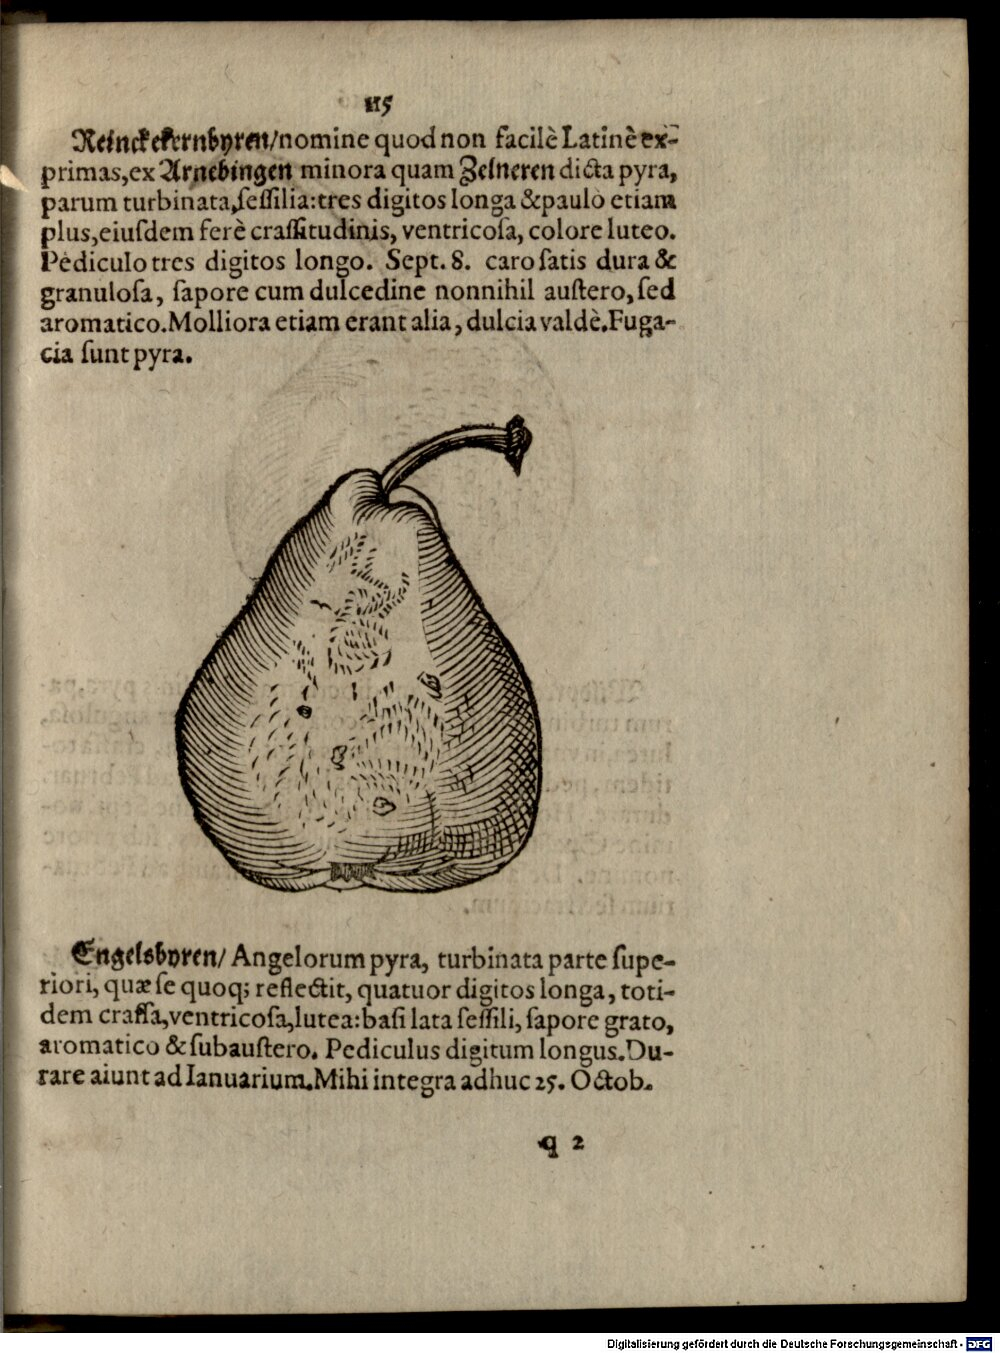 115
Reinckekernbyren/nomine quod non facilè Latinè ex-
primas, ex Arnebingen minora quam Zelneren dicta pyra,
parum turbinata, ſeſſilia: tres digitos longa & paulò etiam
plus, eiuſdem ferè craſſitudinis, ventricoſa, colore luteo.
Pediculo tres digitos longo. Sept. 8. caro ſatis dura &
granuloſa, ſapore cum dulcedine nonnihil auſtero, ſed
aromatico. Molliora etiam erant alia, dulcia valdè. Fuga-
cia ſunt pyra.
Engelsbyren/ Angelorum pyra, turbinata parte ſupe-
riori, quæ ſe quoq; reflectit, quatuor digitos longa, toti-
dem craſſa, ventricoſa, lutea: baſi lata ſeſſili, ſapore grato,
aromatico & ſubauſtero. Pediculus digitum longus. Du-
rare aiunt ad Ianuarium. Mihi integra adhuc 25. Octob.
q 2
Digitalisierung gefördert durch die Deutsche Forschungsgemeinschaft - DFG